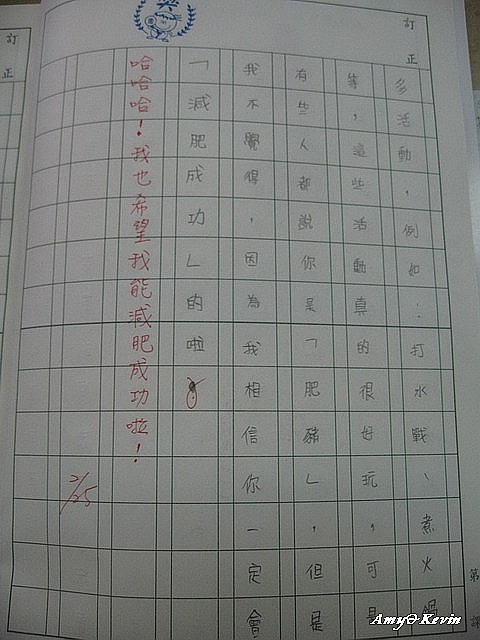 訂正
多活動，例如：打水戰、煮火鍋
等，這些活動真的很好玩，可是
有些人都說你是「肥豬」，但是
我不覺得，因為我相信你一定會
「減肥成功」的啦
哈哈哈！我也希望我能減肥成功啦！
2/25
訂正
第
Amy∂Kevin